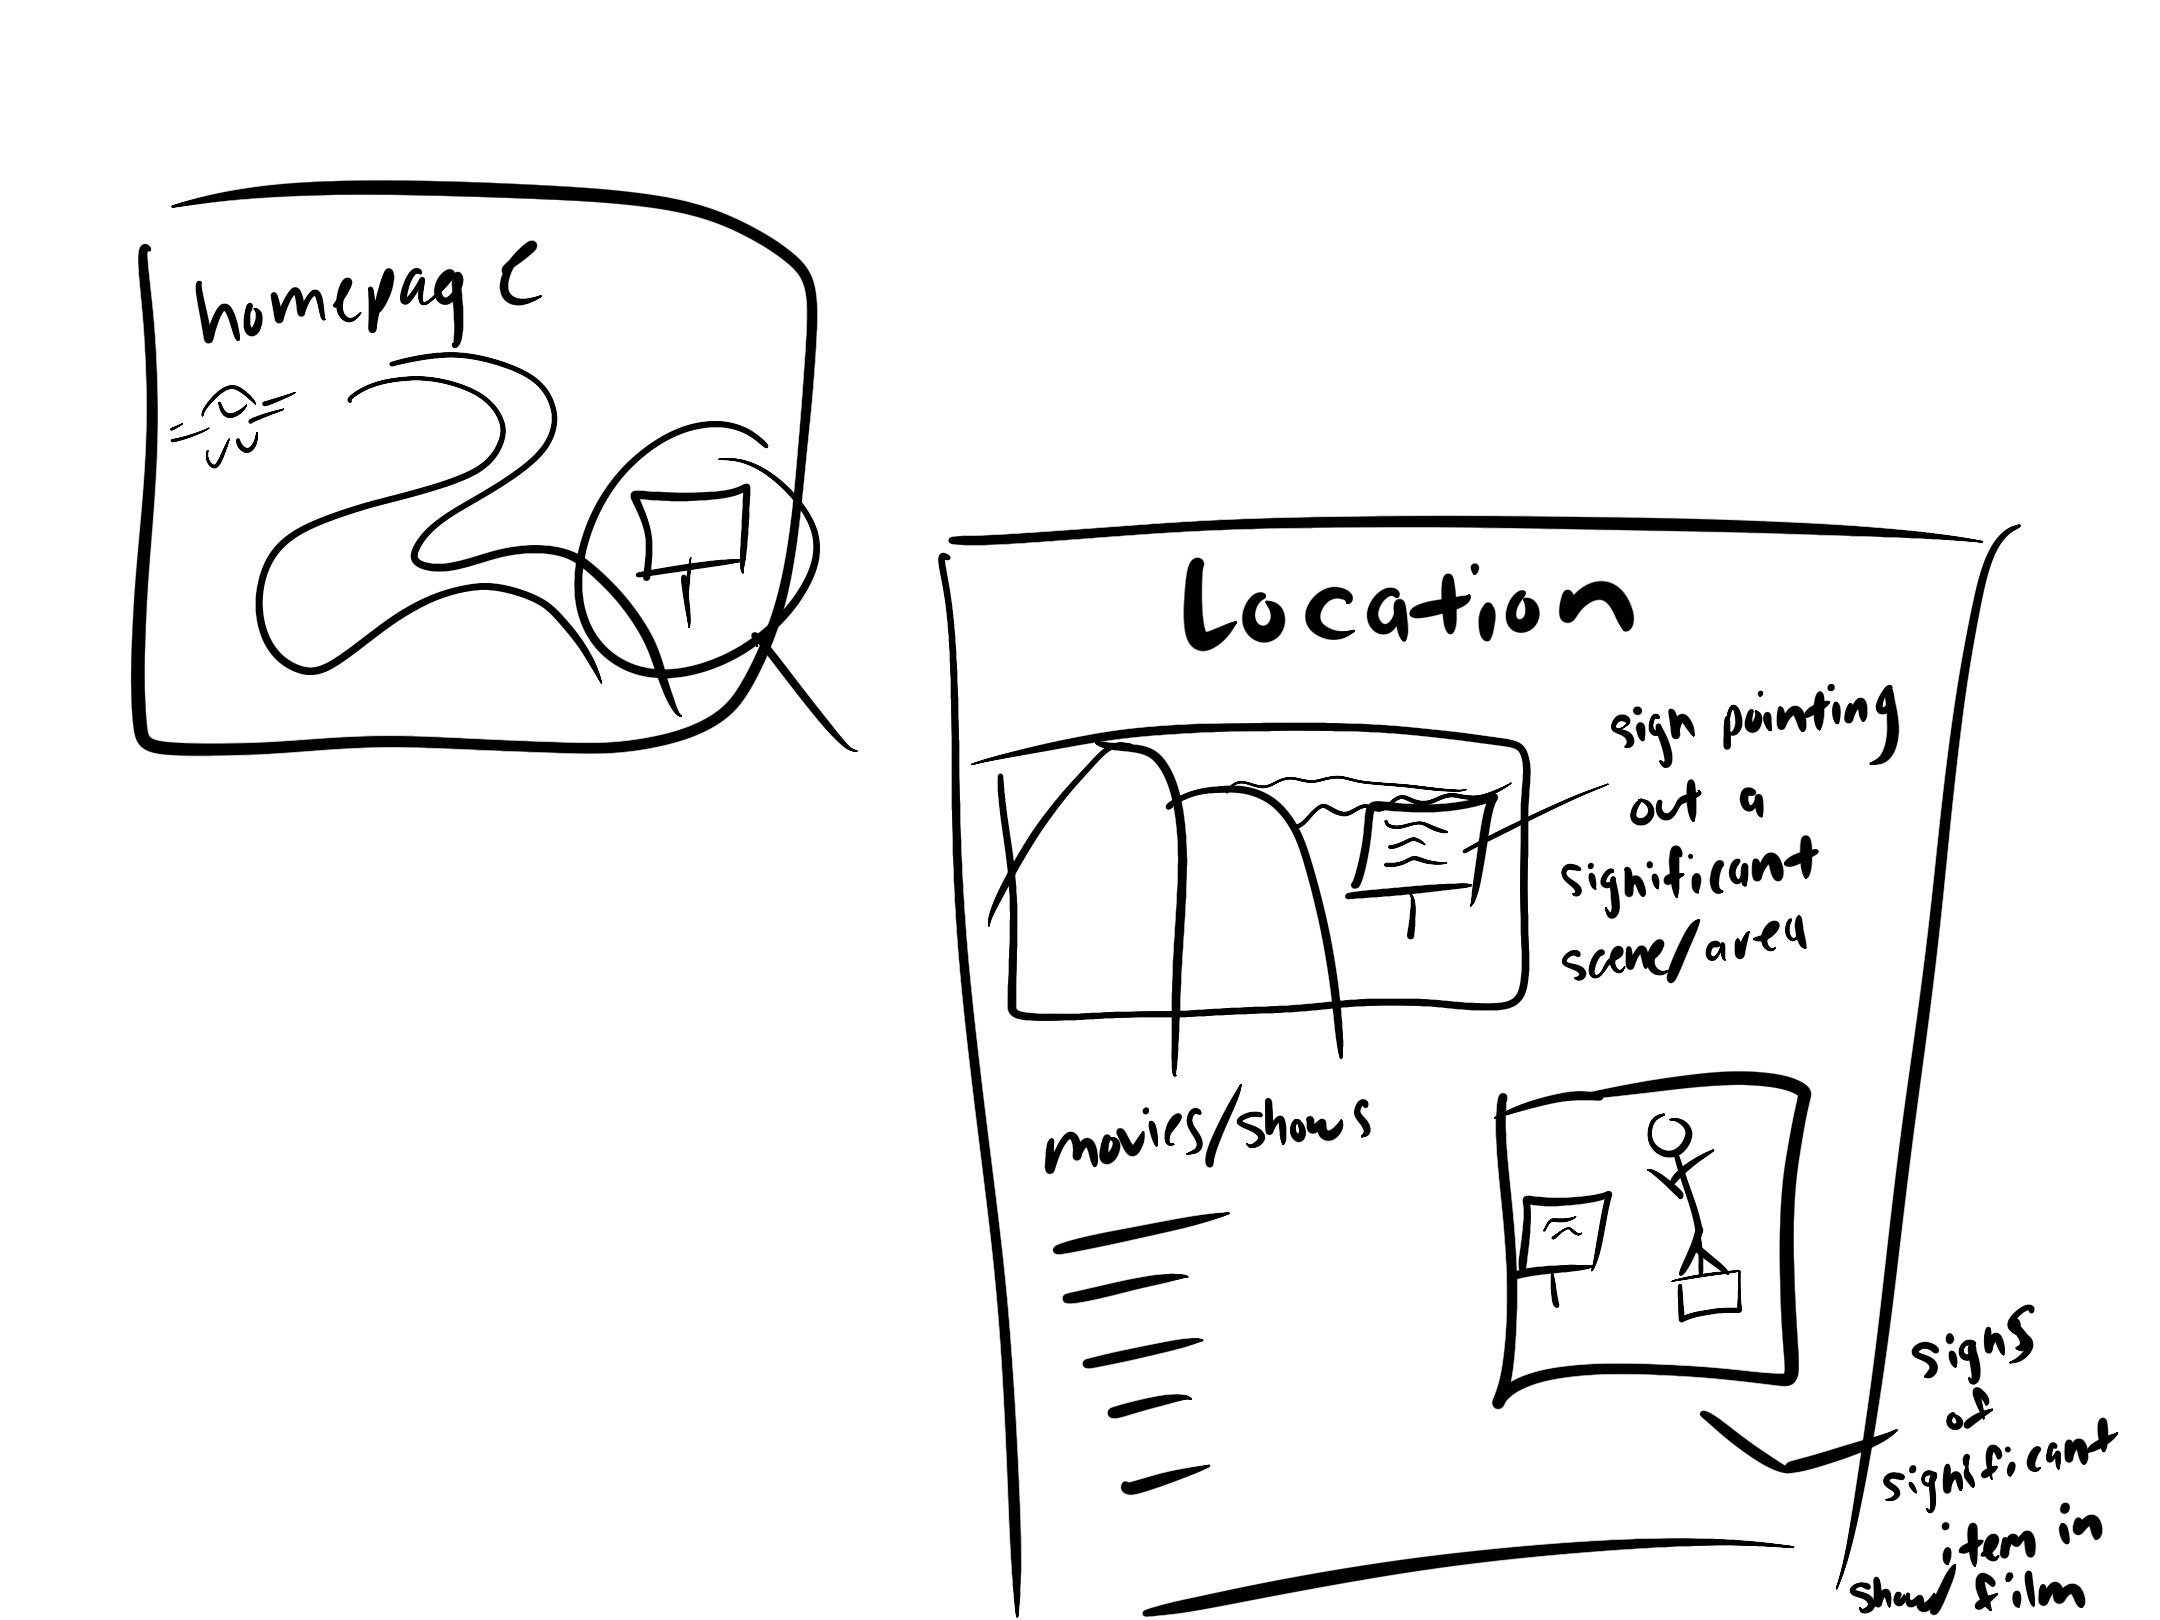 homepage
Location
sign pointing
out a
significant
scene/area
movies/shows
signs
of
significant
item in
show/film